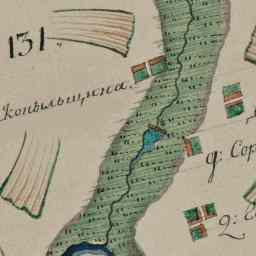 131.
Копыльщина.
д: Сор
2: